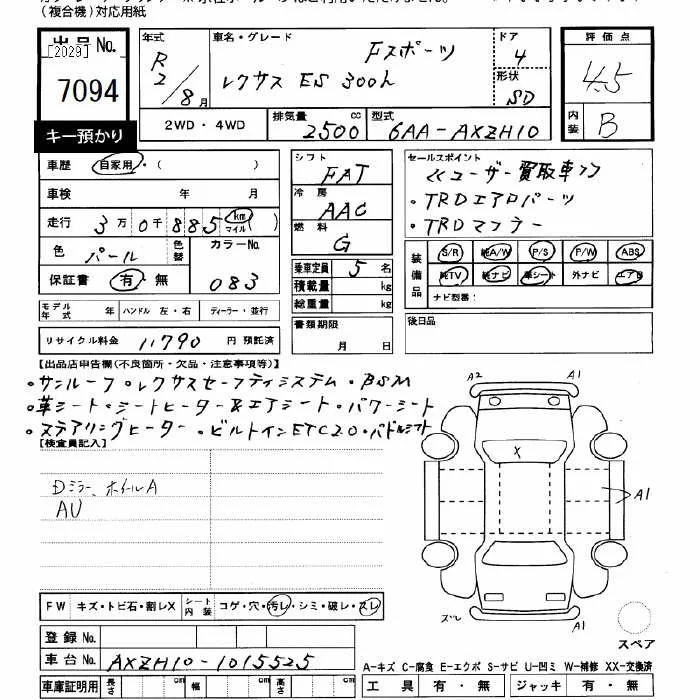 (複合機)対応用紙
出品No.
[2029]
7094
キー預かり
年式
R2/8月
車名・グレード
Fスポーツ
レクサス ES 300h
ドア
4
形状
SD
評価点
4.5
内装
B
2WD・4WD
排気量
2500cc
型式
6AA-AXZH10
車歴 自家用・( )
車検 年 月
走行 3万0千885km マイル
色 パール 色替
カラーNo.
083
保証書 有・無
シフト
FAT
冷房
AAC
燃料
G
乗車定員 5名
積載量 kg
総重量 kg
書類期限
月 日
セールスポイント
<<ユーザー買取車>>
・TRDエアロパーツ
・TRDマフラー
装備品
S/R 純A/W P/S P/W ABS
純TV 純ナビ 革シート 外ナビ エアB
ナビ型番:
後日品
モデル年式 年 ハンドル 左・右 ディーラー・並行
リサイクル料金 11790 円 預託済
【出品店申告欄(不良箇所・欠品・注意事項等)】
・サンルーフ・レクサスセーフティシステム・BSM
・革シート・シートヒーター&エアシート・パワーシート
・ステアリングヒーター・ビルトインETC2.0・パドルシフト
【検査員記入】
Dミラー、ホイールA
AU
A2
A1
X
A1
ズレ
A1
スペア
FW キズ・トビ石・割レX シート内装 コゲ・穴・汚レ・シミ・破レ・スレ
登録No.
車台No. AXZH10-1015525
車庫証明用 長さ cm 幅 cm 高さ cm
A-キズ C-腐食 E-エクボ S-サビ U-凹ミ W-補修 XX-交換済
工具 有・無 ジャッキ 有・無